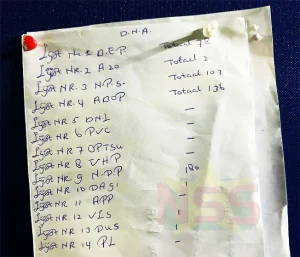 D.N.A.
Lijst Nr. 1 B.E.P Totaal 72
Lijst NR. 2 A20 Totaal 2
Lijst NR. 3 N.P.S. Totaal 103
Lijst NR. 4 ABOP Totaal 136
Lijst NR 5 DNI -
Lijst NR 6 PVC -
Lijst NR 7 OPTSU -
Lijst NR 8 V.H.P -
Lijst NR 9 N.D.P 180
Lijst NR 10 DA91 1
Lijst NR 11 APP -
Lijst NR 12 VIS -
Lijst NR 13 DUS 1
Lijst NR 14 PL -
NSS